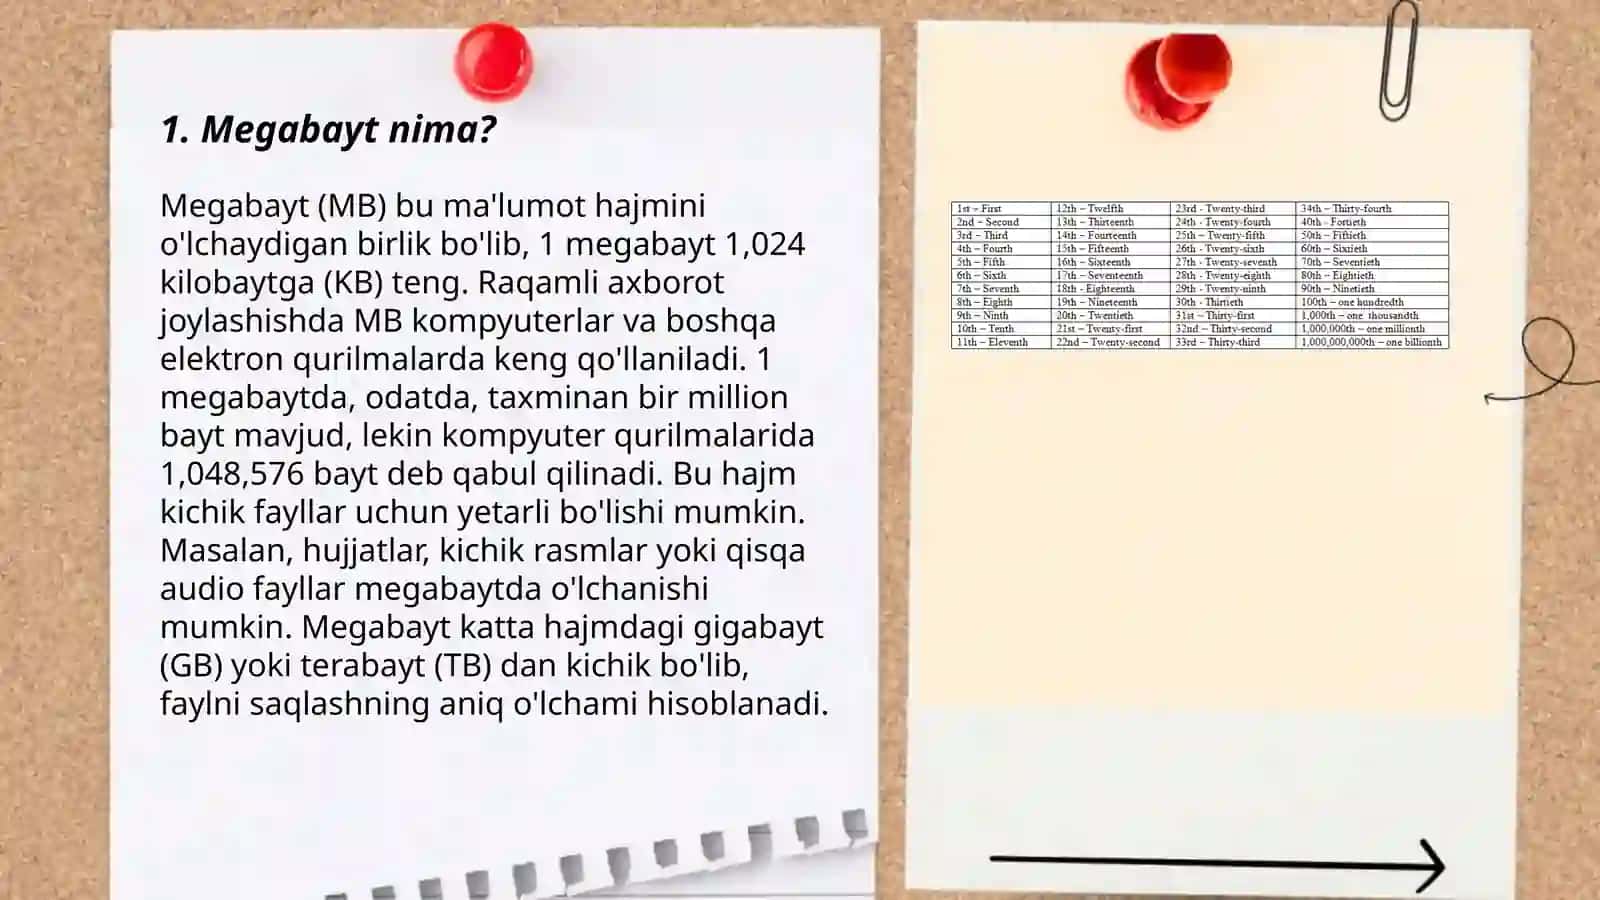 1. Megabayt nima?
Megabayt (MB) bu ma'lumot hajmini
o'lchaydigan birlik bo'lib, 1 megabayt 1,024
kilobaytga (KB) teng. Raqamli axborot
joylashishda MB kompyuterlar va boshqa
elektron qurilmalarda keng qo'llaniladi. 1
megabaytda, odatda, taxminan bir million
bayt mavjud, lekin kompyuter qurilmalarida
1,048,576 bayt deb qabul qilinadi. Bu hajm
kichik fayllar uchun yetarli bo'lishi mumkin.
Masalan, hujjatlar, kichik rasmlar yoki qisqa
audio fayllar megabaytda o'lchanishi
mumkin. Megabayt katta hajmdagi gigabayt
(GB) yoki terabayt (TB) dan kichik bo'lib,
faylni saqlashning aniq o'lchami hisoblanadi.
1st – First 12th – Twelfth 23rd - Twenty-third 34th – Thirty-fourth
2nd – Second 13th – Thirteenth 24th - Twenty-fourth 40th - Fortieth
3rd – Third 14th – Fourteenth 25th – Twenty-fifth 50th – Fiftieth
4th – Fourth 15th – Fifteenth 26th - Twenty-sixth 60th – Sixtieth
5th – Fifth 16th – Sixteenth 27th - Twenty-seventh 70th – Seventieth
6th – Sixth 17th – Seventeenth 28th - Twenty-eighth 80th – Eightieth
7th – Seventh 18th - Eighteenth 29th - Twenty-ninth 90th – Ninetieth
8th – Eighth 19th – Nineteenth 30th - Thirtieth 100th – one hundredth
9th – Ninth 20th – Twentieth 31st – Thirty-first 1,000th – one thousandth
10th – Tenth 21st – Twenty-first 32nd – Thirty-second 1,000,000th – one millionth
11th – Eleventh 22nd – Twenty-second 33rd – Thirty-third 1,000,000,000th – one billionth